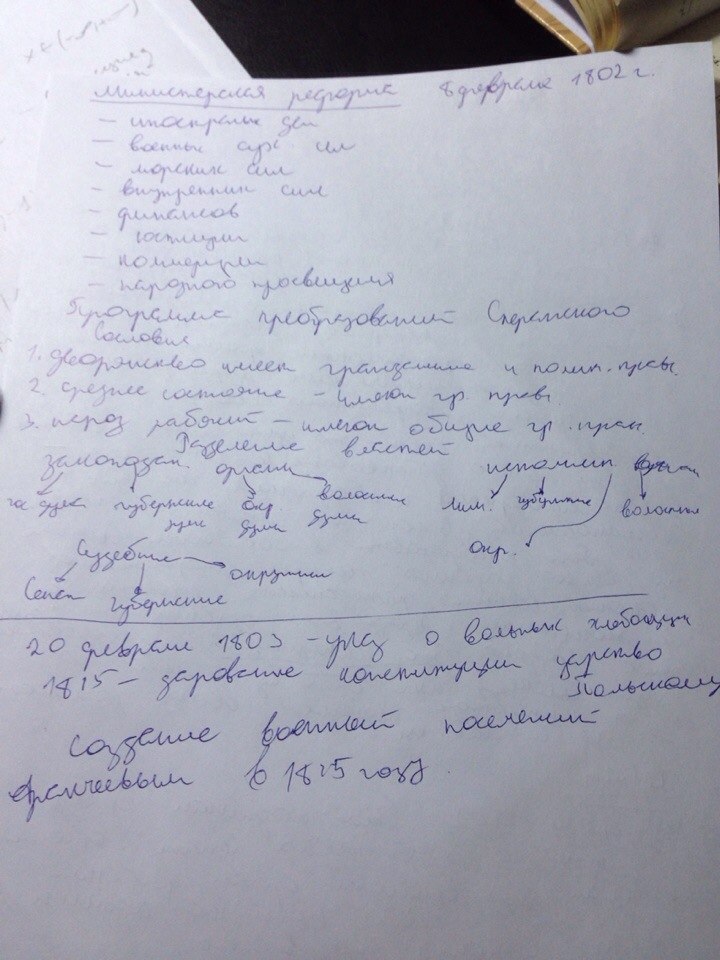 Министерская реформа 8 февраля 1802 г.
– иностраных дел
– военных сух сил
– морских сил
– внутренних сил
– финансов
– юстиции
– коммерции
– народного просвещения
Программа преобразований Сперанского
Сословие
1. дворянство имеет гражданские и полит. права.
2. среднее состояние – имеют гр. права
3. народ рабочий – имеют общие гр. права
Разделение властей
законодат органы исполнит
гос дума губернские окр волостные
думы думы
Мин. губернские волостные
окр.
Судебные
Сенат губернские окружные
20 февраля 1803 – указ о вольных хлебопашцах
1815 – дарование конституции царство
Польскому
Создание военных поселений
в 1815 году.